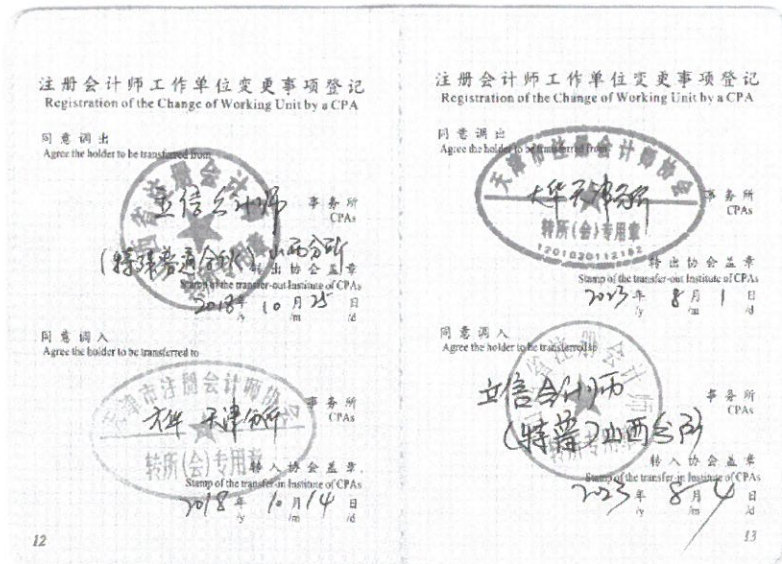 注册会计师工作单位变更事项登记
Registration of the Change of Working Unit by a CPA
同意调出
Agree the holder to be transferred from
立信会计师
事务所
CPAs
(特殊普通合伙)山西分所
转出协会盖章
Stamp of the transfer-out Institute of CPAs
2018年10月25日
/y /m /d
同意调入
Agree the holder to be transferred to
天津市注册会计师协会
大华 天津分所
事务所
CPAs
转所(会)专用章
转入协会盖章
Stamp of the transfer-in Institute of CPAs
2018年10月14日
/y /m /d
12
注册会计师工作单位变更事项登记
Registration of the Change of Working Unit by a CPA
同意调出
Agree the holder to be transferred from
天津市注册会计师协会
大华天津分所
事务所
CPAs
转所(会)专用章
1201020112182
转出协会盖章
Stamp of the transfer-out Institute of CPAs
2023年8月1日
/y /m /d
同意调入
Agree the holder to be transferred to
立信会计师
事务所
CPAs
(特普)山西分所
转入协会盖章
Stamp of the transfer-in Institute of CPAs
2023年8月4日
/y /m /d
13